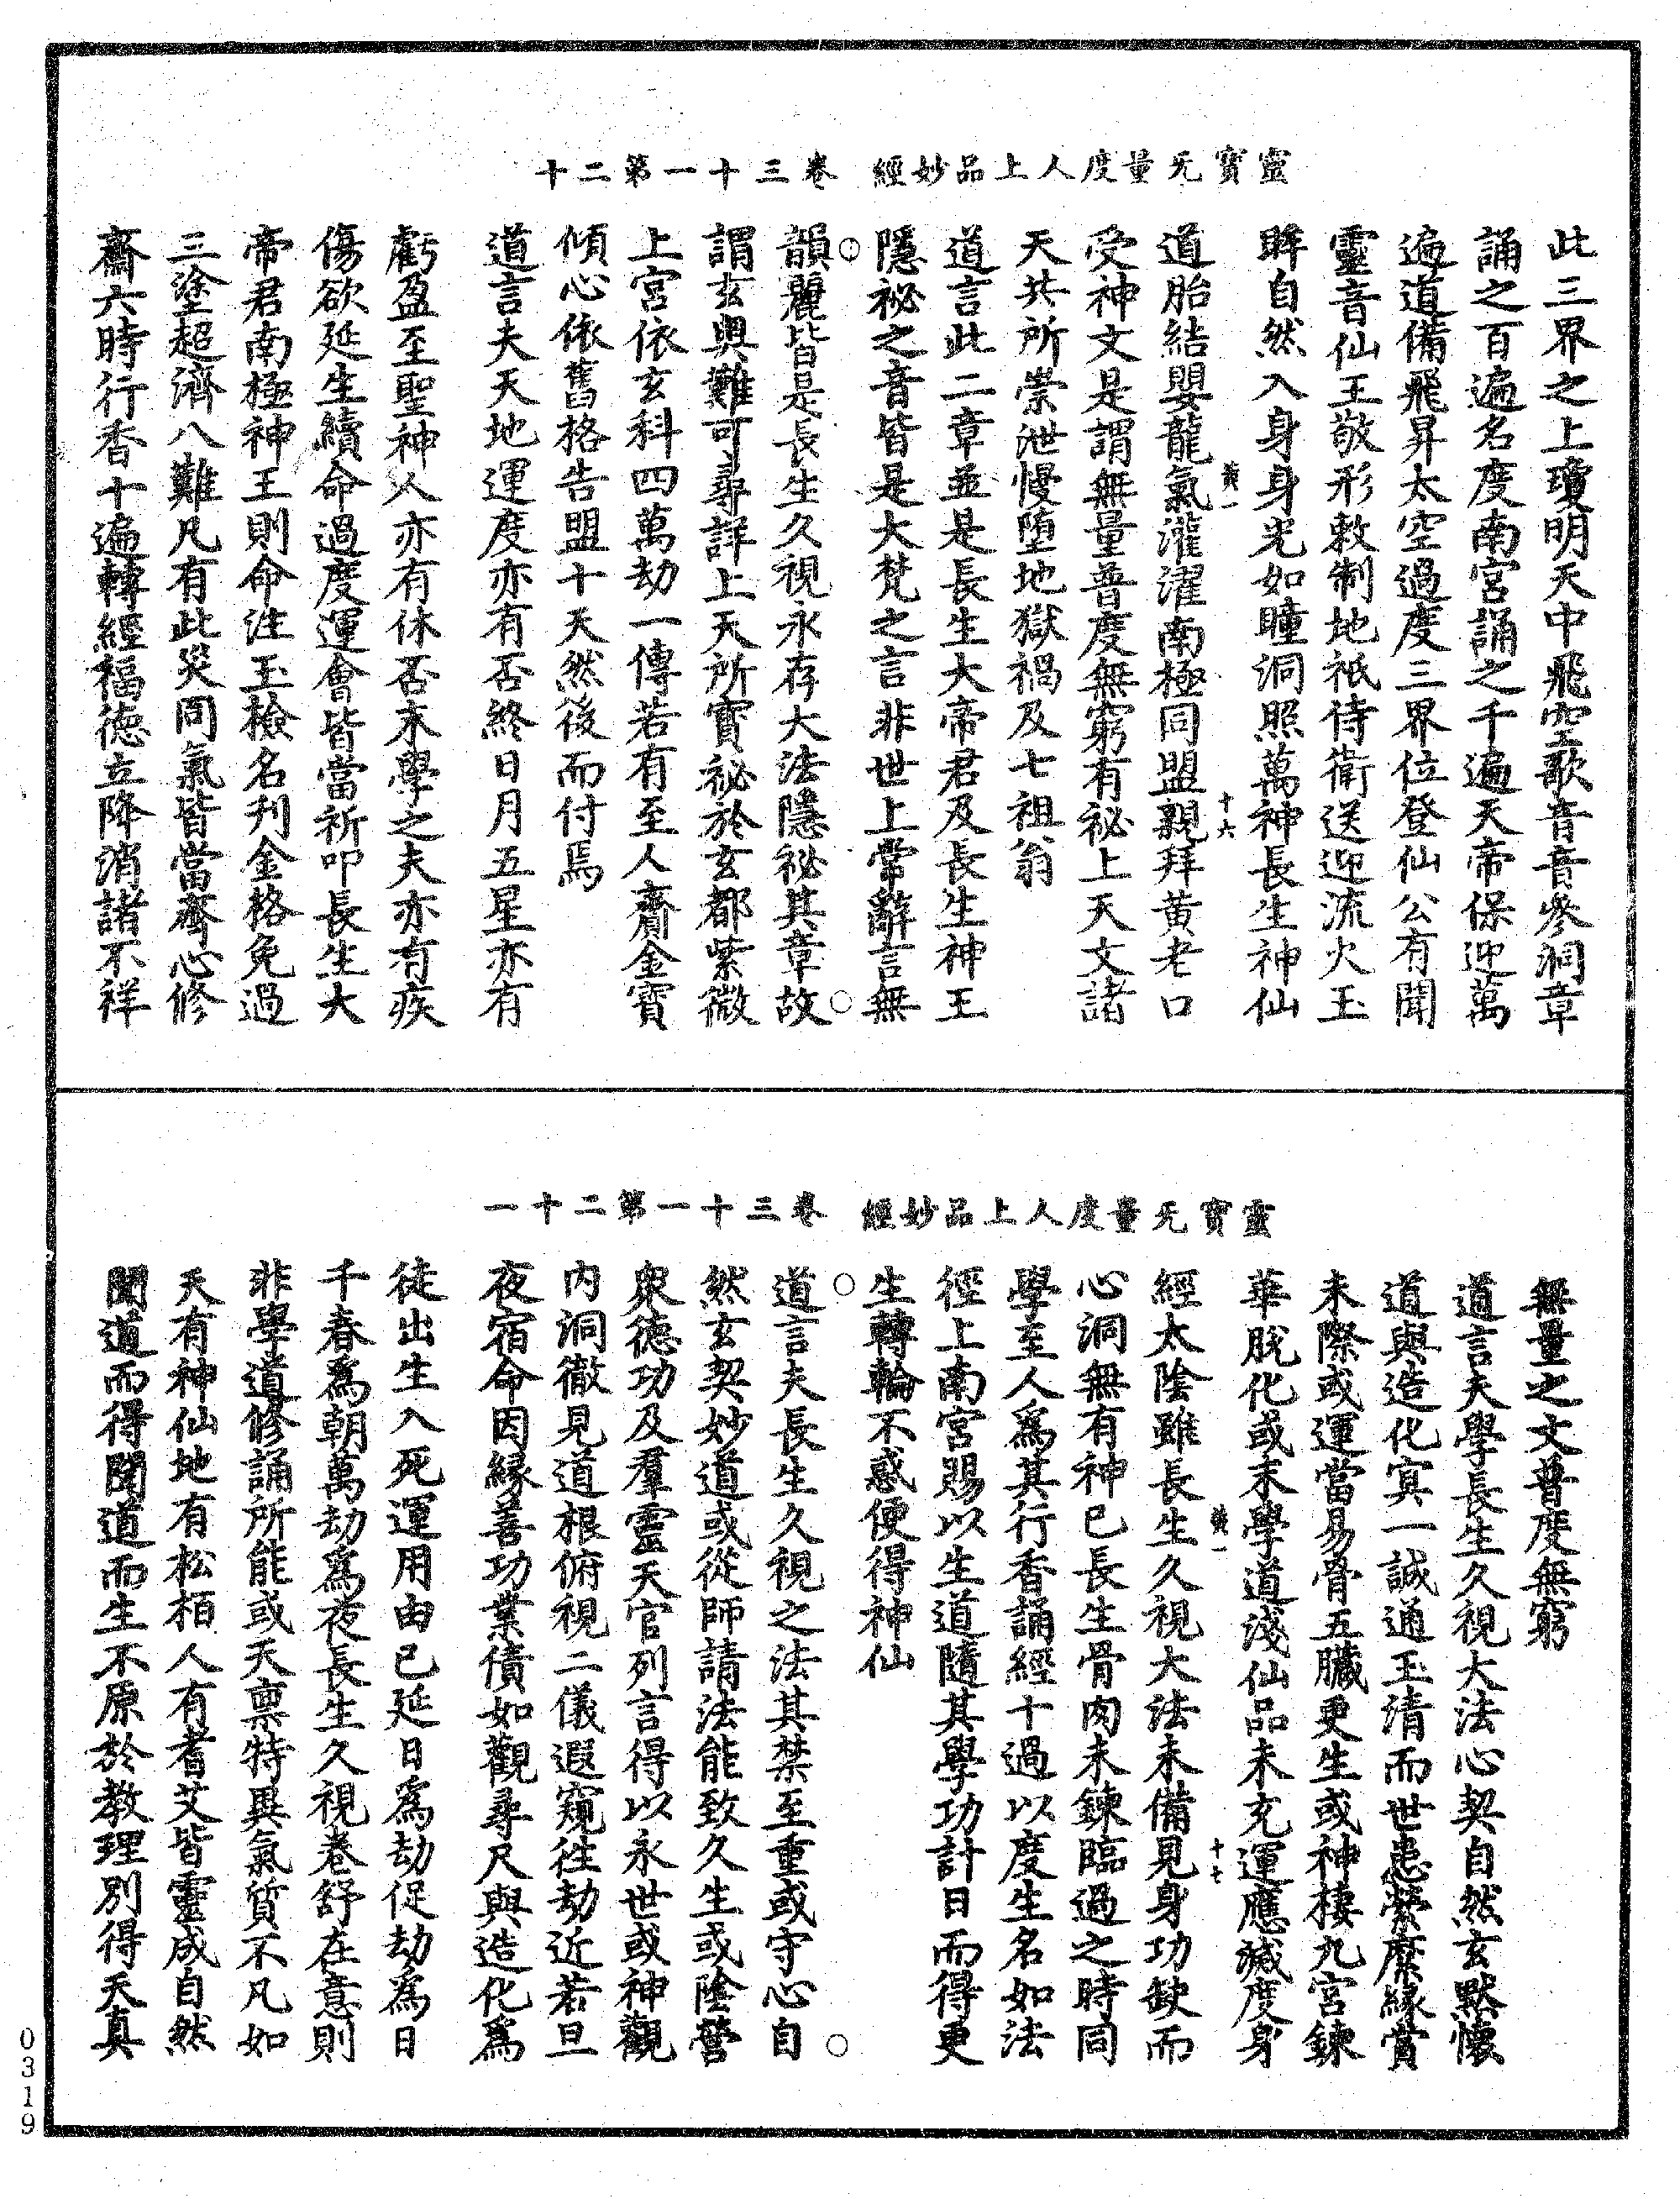 靈寶无量度人上品妙經 卷三十一第二十
此三界之上瓊明天中飛空歌音音參洞章
誦之百遍名度南宮誦之千遍天帝保迎萬
遍道備飛昇太空過度三界位登仙公有聞
靈音仙王敬形敕制地祇侍衛送迎流火玉
眸自然入身身光如瞳洞照萬神長生神仙
黃一 十六
道胎結嬰龍氣灌濯南極同盟親拜黃老口
受神文是謂無量普度無窮有祕上天文諸
天共所崇泄慢墮地獄禍及七祖翁
道言此二章並是長生大帝君及長生神王
隱祕之音皆是大梵之言非世上常辭言無
韻麗皆是長生久視永存大法隱祕其章故
謂玄奧難可尋詳上天所寶祕於玄都紫微
上宮依玄科四萬劫一傳若有至人齎金寶
傾心依舊格告盟十天然後而付焉
道言夫天地運度亦有否終日月五星亦有
虧盈至聖神人亦有休否末學之夫亦有疾
傷欲延生續命過度運會皆當祈叩長生大
帝君南極神王則命注玉檢名刊金格免過
三塗超濟八難凡有此災同氣皆當齋心修
齋六時行香十遍轉經福德立降消諸不祥
靈寶无量度人上品妙經 卷三十一第二十一
無量之文普度無窮
道言夫學長生久視大法心契自然玄默懷
道與造化冥一誠通玉清而世患縈縻緣賞
未際或運當易骨五臟更生或神棲九宮鍊
華脫化或末學道淺仙品未充運應滅度身
黃一 十七
經太陰雖長生久視大法未備見身功缺而
心洞無有神已長生骨肉未鍊臨過之時同
學至人爲其行香誦經十過以度生名如法
徑上南宮賜以生道隨其學功計日而得更
生轉輪不惑便得神仙
道言夫長生久視之法其禁至重或守心自
然玄契妙道或從師請法能致久生或陰營
衆德功及羣靈天官列言得以永世或神觀
內洞徹見道根俯視二儀遐窺往劫近若旦
夜宿命因緣善功業債如觀尋尺與造化爲
徒出生入死運用由已延日爲劫促劫爲日
千春爲朝萬劫爲夜長生久視卷舒在意則
非學道修誦所能或天稟特異氣質不凡如
天有神仙地有松栢人有耆艾皆靈成自然
聞道而得聞道而生不原於教理別得天真
0319